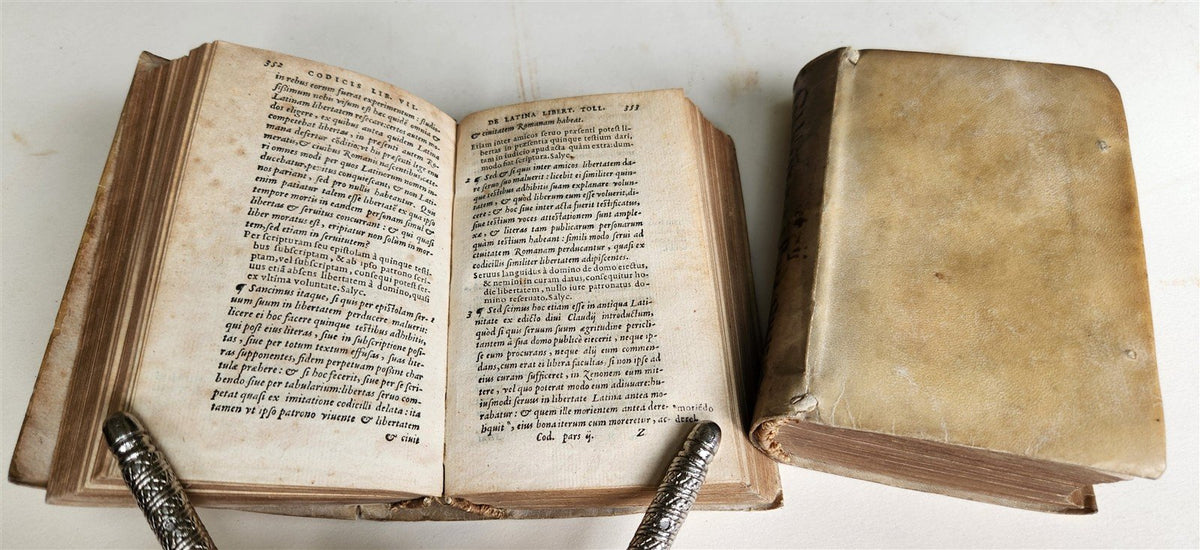 352 CODICIS LIB. VII.
in rebus eorum fuerat experimentum: studio-
sissimum nobis visum est hoc quidē omnia ex
Latinam libertatem resecare. certos autem mo-
dos eligere, ex quibus antea quidem Latina
competebat libertas, in præsenti autem Ro-
mana defertur cōditio: vt his præsenti lege enu
meratis, & ciuibus Romanis nascentibus, cæte-
ri omnes modi per quos Latinorum nomen in-
ducebatur, penitus conquiescant, & non Lati-
nos pariant, sed pro nullis habeantur. Quis
enim patiatur talem esse libertatē ex qua ipso
tempore mortis in eandem personam simul &
libertas & seruitus concurrant: & qui quasi
liber moratus est, eripiatur non solum in mor-
tem, sed etiam in seruitutem?
Per scripturam seu epistolam à quinque testi-
bus subscriptam, & ab ipso patrono scri-
ptam, vel subscriptam, consequi potest ser-
uus etiā absens libertatem à domino, quasi
ex vltima voluntate. Salyc.
¶ Sancimus itaque, si quis per epistolam ser- 1
uum suum in libertatem perducere maluerit:
licere ei hoc facere quinque testibus adhibitis,
qui post eius literas, siue in subscriptione posi-
tas, siue per totum textum effusas, suas lite-
ras supponentes, fidem perpetuam possint char
tulæ præbere: & si hoc fecerit, siue per se scri-
bendo siue per tabularium: libertas seruo com-
petat quasi ex imitatione codicilli delata: ita
tamen vt ipso patrono viuente & libertatem
& ciuit
DE LATINA LIBERT. TOLL. 353
& ciuitatem Romanam habeat.
Etiam inter amicos seruo præsenti potest li-
bertas in præsentia quinque testium dari,
tam in iudicio apud acta quàm extra: dum-
modo fiat scriptura. Salyc.
2 ¶ Sed & si quis inter amicos libertatem da-
re seruo suo maluerit: licebit ei similiter quin-
que testibus adhibitis suam explanare volun-
tatem, & quòd liberum eum esse voluerit, di-
cere: & hoc siue inter acta fuerit testificatus,
siue testium voces attestationem sunt ample-
xæ, & literas tam publicarum personarum
quàm testium habeant: simili modo serui ad
ciuitatem Romanam perducantur, quasi ex
codicillis similiter libertatem adipiscentes.
Seruus languidus à domino de domo eiectus,
& nemini in curam datus, consequitur ho-
die libertatem, nullo iure patronatus do-
mino reseruato. Salyc.
3 ¶ Sed scimus hoc etiam esse in antiqua Lati-
nitate ex edicto diui Claudij introductum,
quòd si quis seruum suum ægritudine pericli-
tantem à sua domo publicè eiecerit, neque ip-
se eum procurans, neque alij eum commen-
dans, cum erat ei libera facultas, si non ipse ad
eius curam sufficeret, in Zenonem eum mit-
tere, vel quo poterat modo eum adiuuare: hu-
iusmodi seruus in libertate Latina antea mo-
rabatur: & quem ille morientem antea dere- "moriēdo
liquit", eius bona iterum cum moreretur, ac- derel.
Cod. pars ij. Z